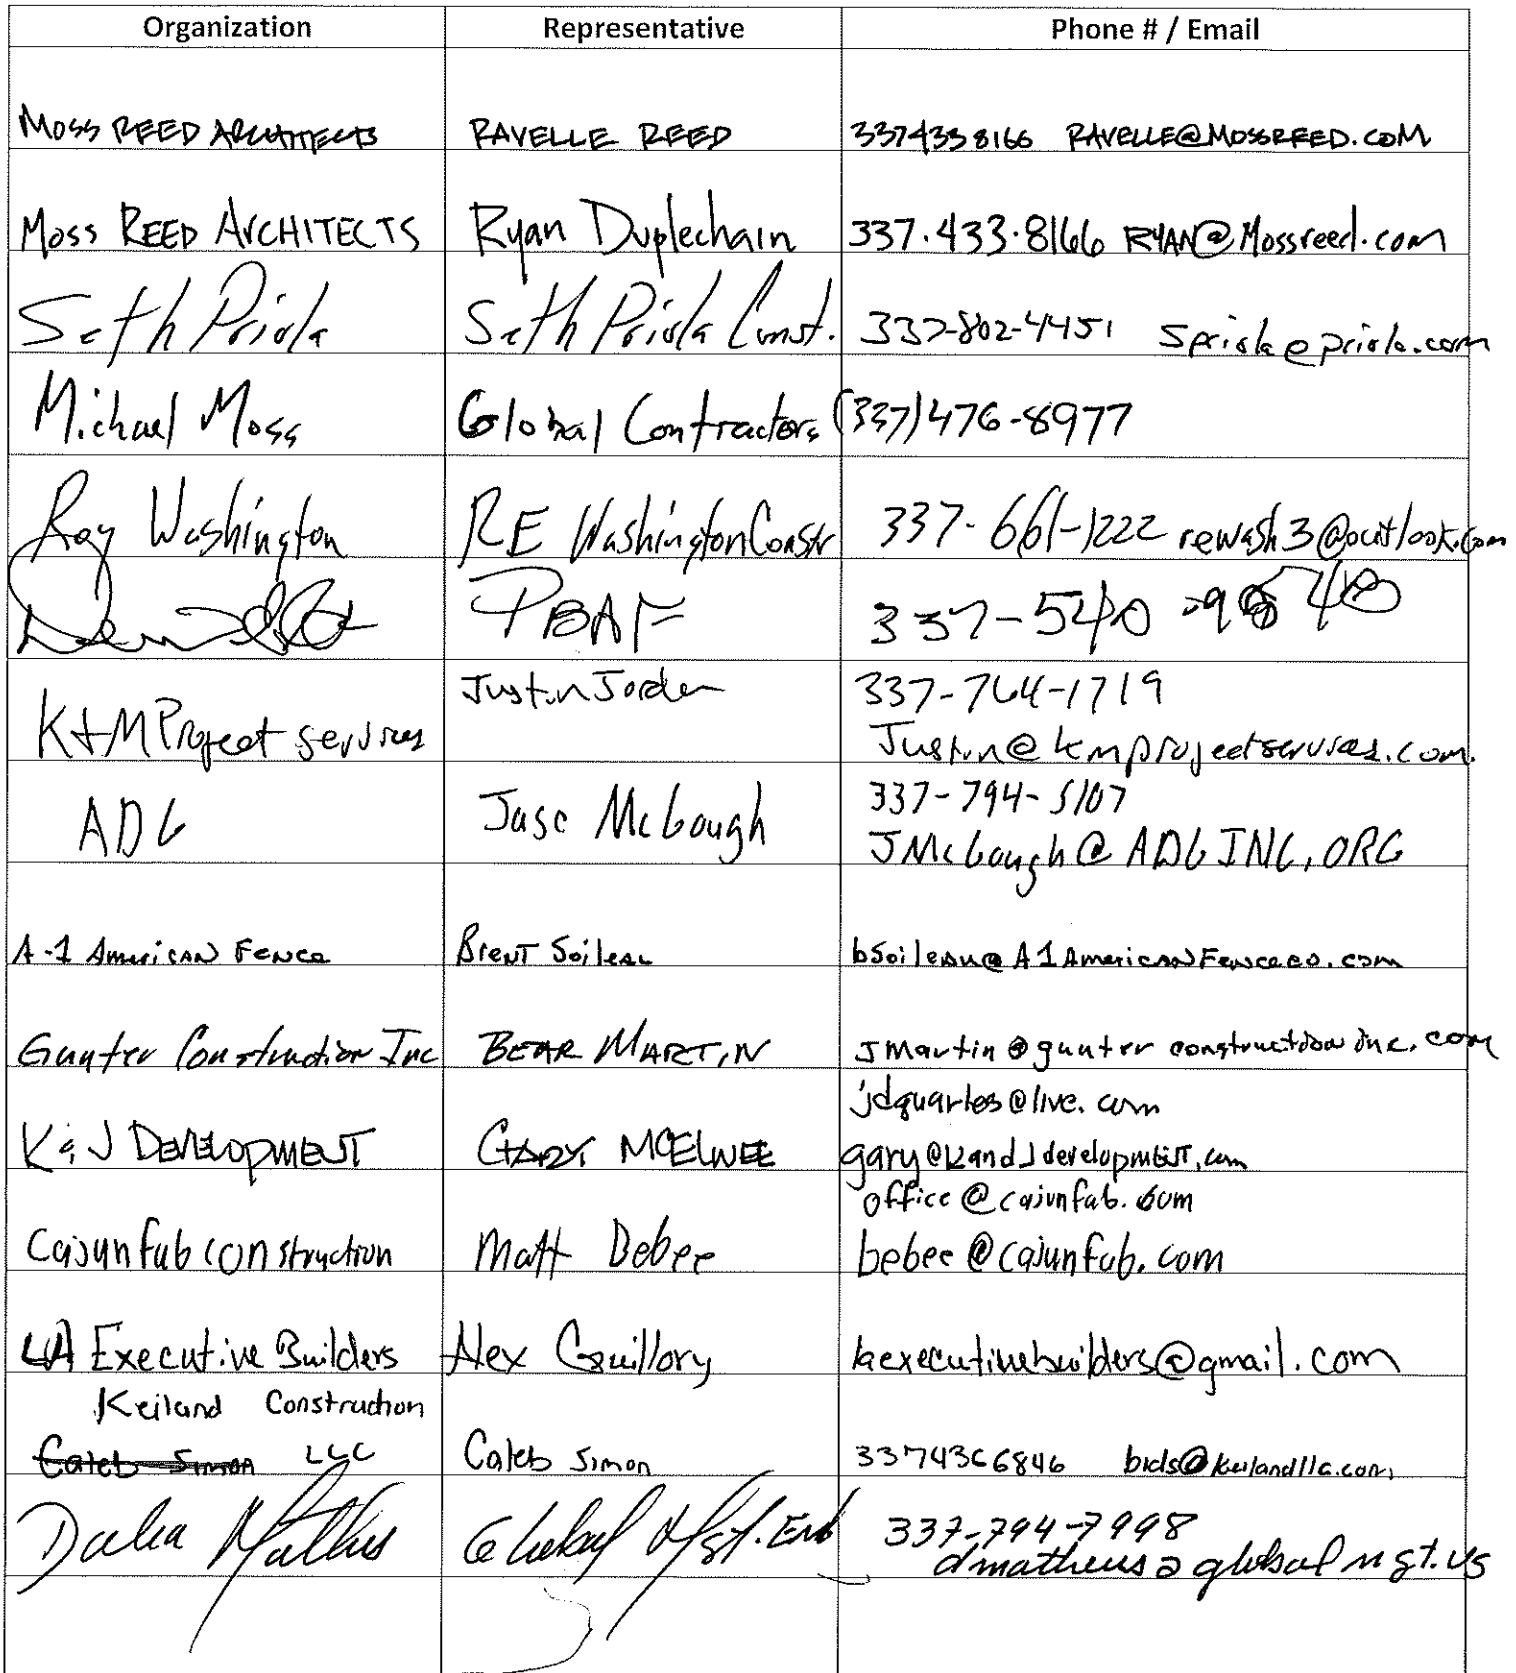 Organization Representative Phone # / Email
MOSS REED ARCHITECTS RAVELLE REED 3374338166 RAVELLE@MOSSREED.COM
Moss REED ARCHITECTS Ryan Duplechain 337.433.8166 RYAN@Mossreed.com
Seth Priola Seth Priola Const. 337-802-4451 spriola@priola.com
Michael Moss Global Contractors (337)476-8977
Roy Washington RE Washington Constr 337-661-1222 rewash3@outlook.com
PBAF 337-540
Justin Jorden 337-764-1719
K+M Project services Justin@kmprojectservices.com.
337-794-5107
ADG Jase McGough JMcGough@ADGINC.ORG
A-1 American Fence Brent Soileau bsoileau@A1AmericanFenceco.com
Gunter Construction Inc BEAR MARTIN JMartin@gunterconstructioninc.com
jdquarles@live.com
K & J DEVELOPMENT GARY MCELWEE gary@KandJdevelopment.com
office@cajunfab.com
Cajunfab construction Matt Bebee bebee@cajunfab.com
LA Executive Builders Alex Guillory laexecutivebuilders@gmail.com
Keiland Construction
Caleb Simon LLC Caleb Simon 3374366846 bids@keilandllc.com
337-794-7998
Global Mgt. dmatheus@globalmgt.us